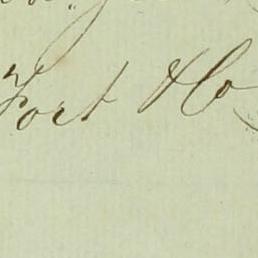 Fort & Co